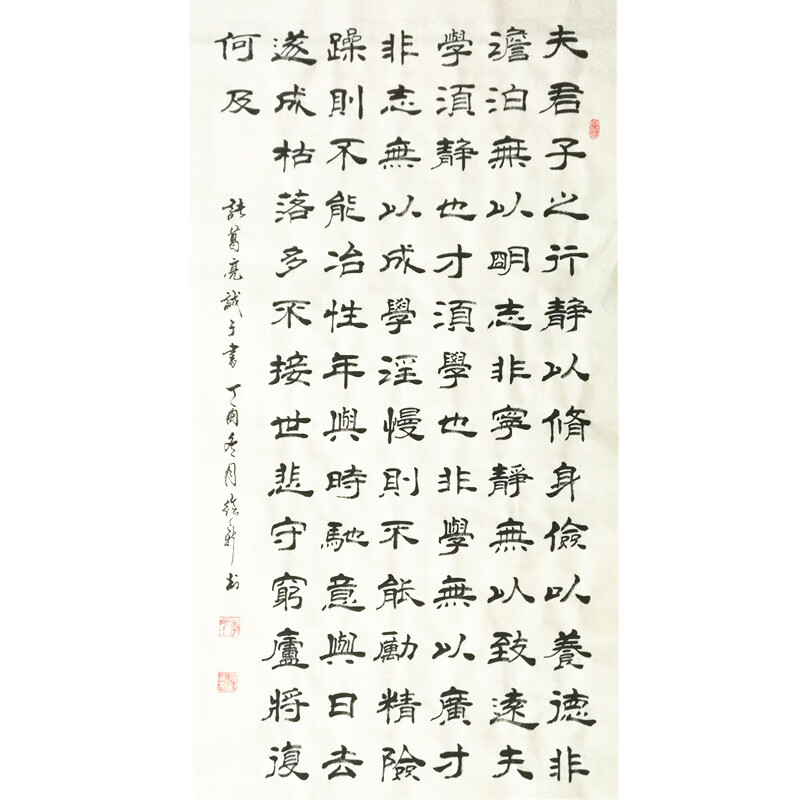 夫君子之行静以脩身儉以養德非
澹泊無以明志非寧靜無以致遠夫
學須静也才須學也非學無以廣才
非志無以成學淫慢則不能勵精險
躁則不能冶性年與時馳意與日去
遂成枯落多不接世悲守窮廬將復
何及
諸葛亮誡子書丁酉冬月